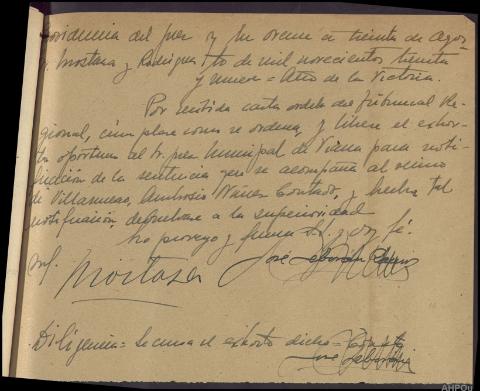 Providencia del juez y En Orense a treinta de Agos-
r. Mostaza y Rodriguez to de mil novecientos treinta
y nueve = Año de la Victoria.
Por sentida carta orden del Tribunal Re-
gional, cúmplase como se ordena, y librese el exhor-
to oportuno al Sr. juez Municipal de Viana para noti-
ficación de la sentencia que se acompaña al vecino
de Villanueva, Ambrosio Núñez Contado, y hecha tal
notificación devuélvase a la superioridad
Lo proveyo y firma S.S. y doy fé.
Mostaza José
Diligencia = Se cursa el exhorto dicho =
José
AHPOu